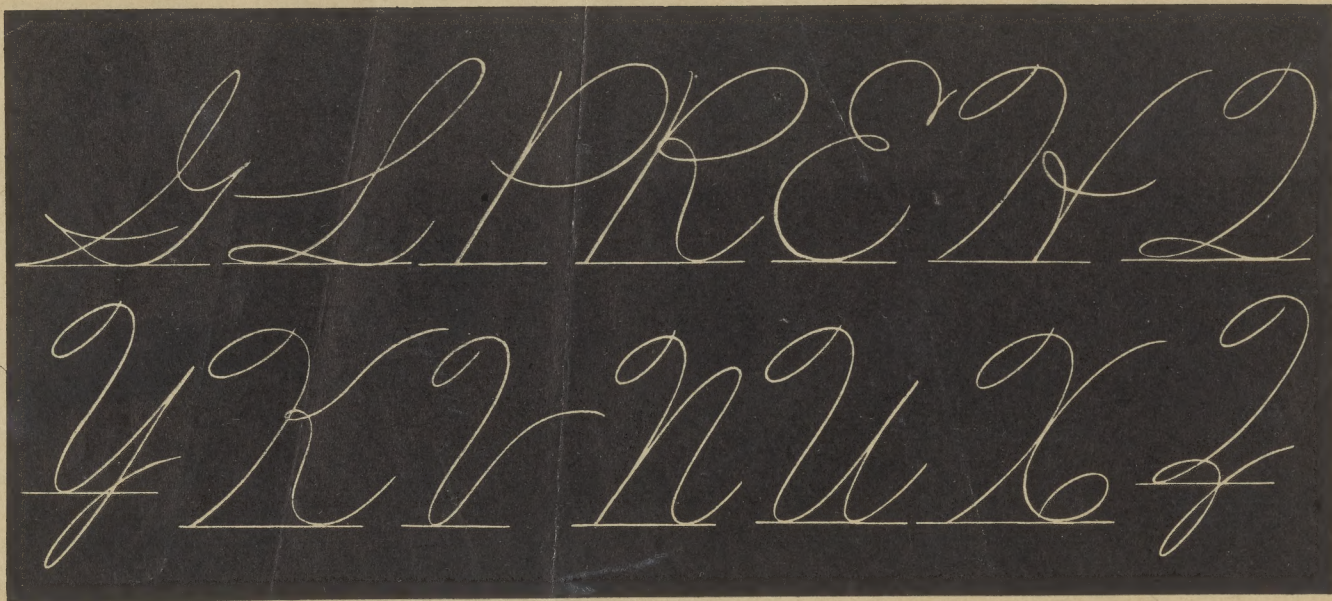 G L P R E H Q
Y K V N U X Z